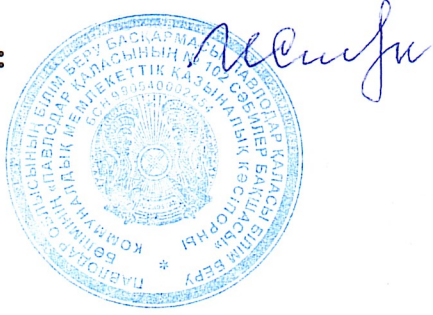 :
ПАВЛОДАР ОБЛЫСЫНЫҢ БІЛІМ БЕРУ БАСҚАРМАСЫ, ПАВЛОДАР ҚАЛАСЫ БІЛІМ БЕРУ
БӨЛІМІНІҢ «ПАВЛОДАР ҚАЛАСЫНЫҢ № 102 СӘБИЛЕР БАҚШАСЫ»
КОММУНАЛДЫҚ МЕМЛЕКЕТТІК ҚАЗЫНАЛЫҚ КӘСІПОРНЫ
БСН
*